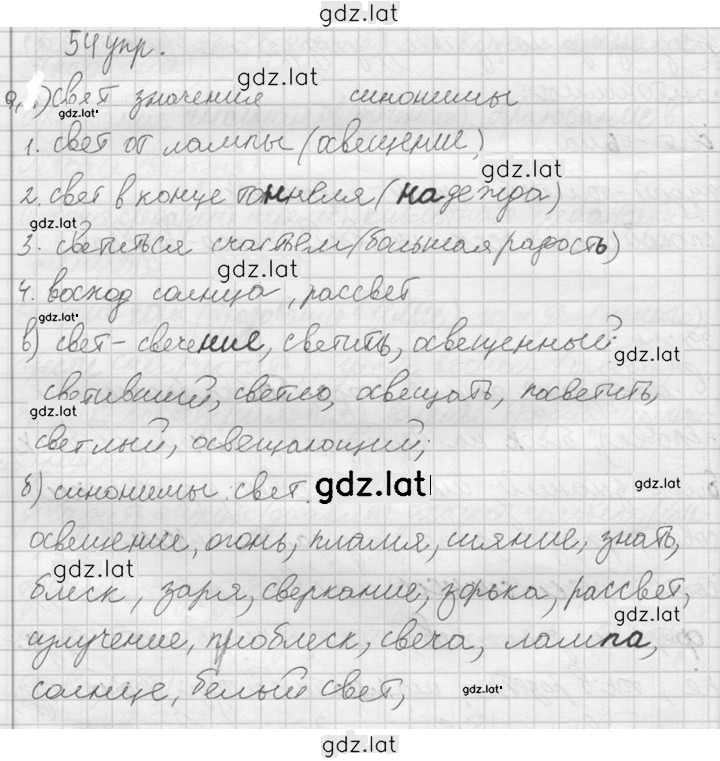 gdz.lat
54 упр.
gdz.lat
а, 1) свят значения синонимы
gdz.lat
1. свет от лампы (освещение)
2. свет в конце тоннеля (надежда)
gdz.lat
3. светиться счастьем (большая радость)
gdz.lat
4. восход солнца, рассвет
gdz.lat
в) свет - свечение, светить, освещенный
gdz.lat
светивший, светло, освещать, посветить,
gdz.lat
светлый, освещающий;
б) синонимы свет gdz.lat gdz.lat
освещение, огонь, пламя, сияние, знать,
gdz.lat
блеск, заря, сверкание, зорька, рассвет,
gdz.lat
излучение, проблеск, свеча, лампа,
солнце, белый свет, gdz.lat
gdz.lat